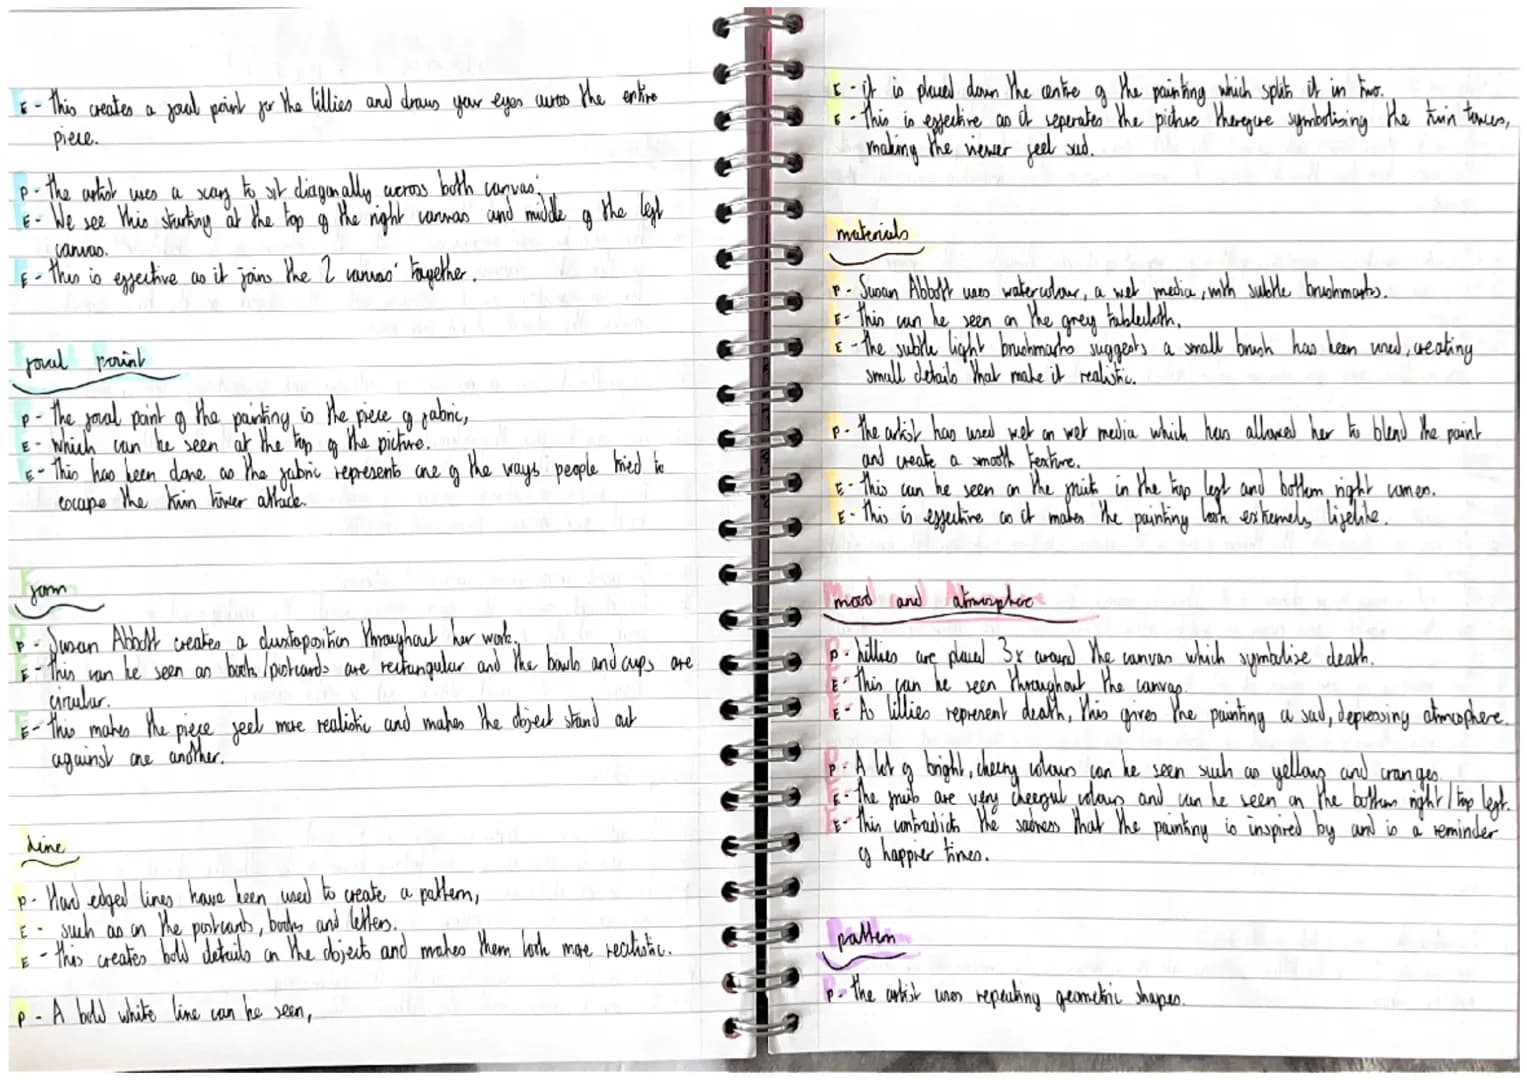 E - this creates a focal point for the lillies and draws your eyes across the entire
piece.
P - the artist uses a scarf to sit diagonally across both canvas'.
E - We see this starting at the top of the right canvas and middle of the left
canvas.
E - this is effective as it joins the 2 canvas' together.
focal point
P - the focal point of the painting is the piece of fabric,
E - which can be seen at the top of the picture.
E - this has been done as the fabric represents one of the ways people tried to
escape the twin tower attack.
form
P - Susan Abbott creates a duxtaposition throughout her work.
E - this can be seen as books/postcards are rectangular and the bowls and cups are
circular.
E - this makes the piece feel more realistic and makes the object stand out
against one another.
Line
P - Hard edged lines have been used to create a pattern,
E - such as on the postcards, books and letters.
E - this creates bold details on the objects and makes them look more realistic.
P - A bold white line can be seen,
E - it is placed down the centre of the painting which splits it in two.
E - this is effective as it seperates the picture therefore symbolising the twin towers,
making the viewer feel sad.
materials
P - Susan Abbott uses watercolour, a wet media, with subtle brushmarks.
E - this can be seen on the grey tablecloth.
E - the subtle light brushmarks suggests a small brush has been used, creating
small details that make it realistic.
P - the artist has used wet on wet media which has allowed her to blend the paint
and create a smooth texture.
E - this can be seen on the fruit in the top left and bottom right corner.
E - this is effective as it makes the painting look extremely lifelike.
mood and atmosphere
P - lillies are placed 3x around the canvas which symbolise death.
E - this can be seen throughout the canvas.
E - As lillies represent death, this gives the painting a sad, depressing atmosphere.
P - A lot of bright, cheery colours can be seen such as yellows and oranges.
E - the fruits are very cheerful colours and can be seen on the bottom right/top left.
E - this contradicts the sadness that the painting is inspired by and is a reminder
of happier times.
pattern
P - the artist uses repeating geometric shapes.